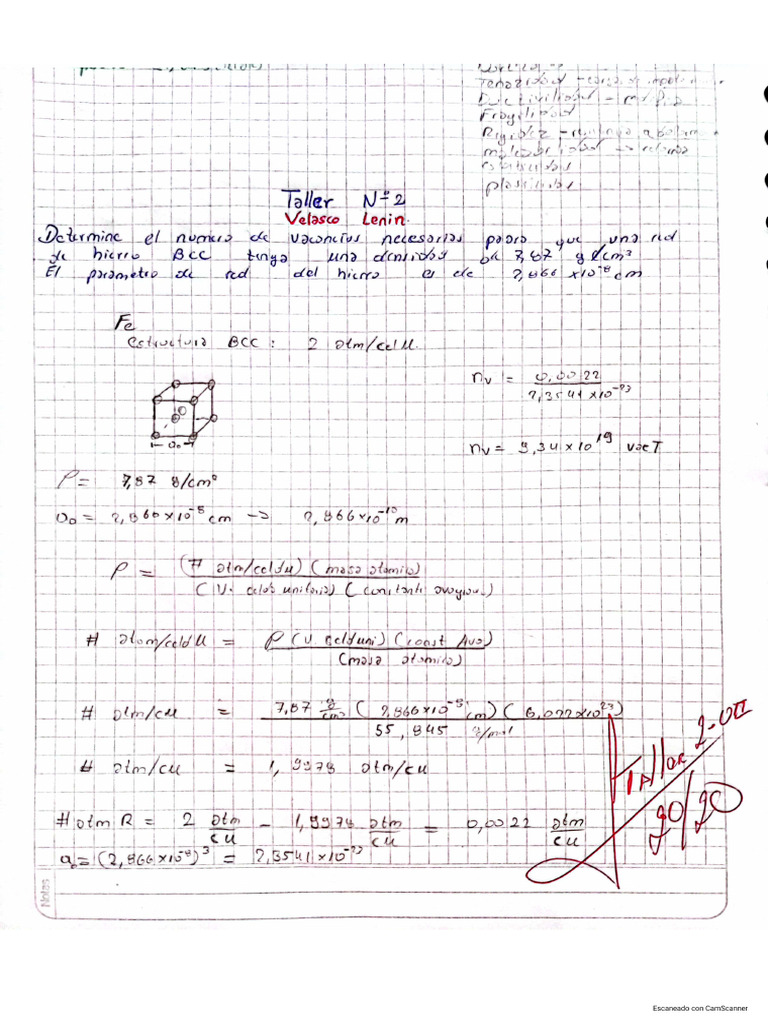 Tenacidad
Ductilidad
Fragilidad
Rigidez
Taller Nº2
Velasco Lenin.
Determine el numero de vacancias necesarias para que una red
de hierro BCC tenga una densidad de 7,87 g/cm³
El parametro de red del hierro es de 2,866 x10⁻⁸ cm
Fe
estructura BCC : 2 atm/celU.
nv = 0,0022 / 2,3541 x10⁻²³
a₀
nv = 9,34 x 10¹⁹ vac
ρ = 7,87 g/cm³
a₀ = 2,866 x10⁻⁸ cm -> 2,866 x10⁻¹⁰ m
ρ = (# atm/celdU) (masa atomica) / (V. celda unitaria) (constante avogau.)
# atom/celdU = ρ (V celduni) (const Avo) / (masa atomica)
# atm/cu = 7,87 g/cm³ (2,866x10⁻⁸ cm) (6,022x10²³) / 55,845 g/mol
# atm/cu = 1,9978 atm/cu
#atm R = 2 atm/cu - 1,9978 atm/cu = 0,0022 atm/cu
a₀ = (2,866 x10⁻⁸)³ = 2,3541 x10⁻²³
Taller 2-
20/20
Notas
Escaneado con CamScanner